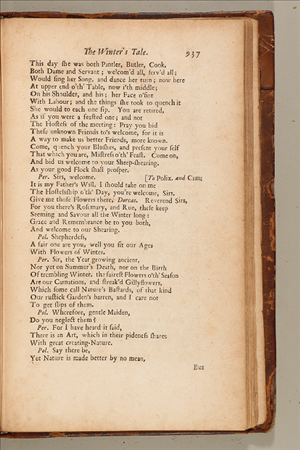 The Winter's Tale. 937
This day she was both Pantler, Butler, Cook,
Both Dame and Servant; welcom'd all, serv'd all;
Would sing her Song, and dance her turn; now here
At upper end o'th' Table, now i'th middle;
On his Shoulder, and his; her Face o'fire
With Labour; and the things she took to quench it
She would to each one sip. You are retired,
As if you were a feasted one; and not
The Hostess of the meeting: Pray you bid
These unknown Friends to's welcome, for it is
A way to make us better Friends, more known.
Come, quench your Blushes, and present your self
That which you are, Mistress o'th' Feast. Come on,
And bid us welcome to your Sheep-shearing,
As your good Flock shall prosper.
Per. Sirs, welcome. [To Polix. and Cam;
It is my Father's Will, I should take on me
The Hostessship o'th' Day, you're welcome, Sirs.
Give me those Flowers there, Dorcas. Reverend Sirs,
For you there's Rosemary, and Rue, these keep
Seeming and Savour all the Winter long:
Grace and Remembrance be to you both,
And welcome to our Shearing.
Pol. Shepherdess,
A fair one are you, well you fit our Ages
With Flowers of Winter.
Per. Sir, the Year growing ancient,
Nor yet on Summer's Death, nor on the Birth
Of trembling Winter, the fairest Flowers o'th' Season
Are our Carnations, and streak'd Gillyflowers,
Which some call Nature's Bastards, of that kind
Our rustick Garden's barren, and I care not
To get slips of them.
Pol. Wherefore, gentle Maiden,
Do you neglect them?
Per. For I have heard it said,
There is an Art, which in their pideness shares
With great creating-Nature.
Pol. Say there be,
Yet Nature is made better by no mean,
But